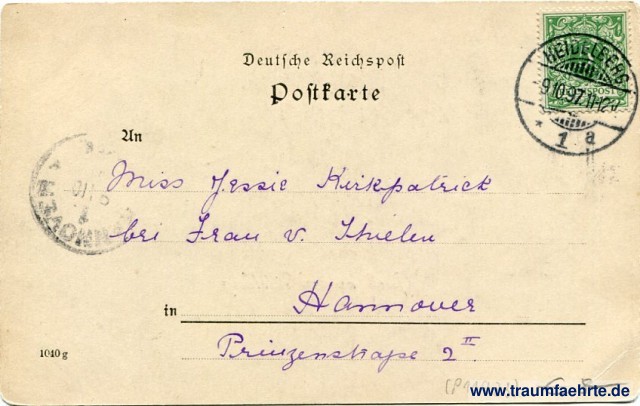 Deutsche Reichspost
Postkarte
HEIDELBERG
9.10.97.11-12V
* 1 a
REICHSPOST
An
Miss Jessie Kirkpatrick
bei Frau v. Thielen
in Hannover
Prinzenstraße 2 II
HANNOVER
1040 g
www.traumfaehrte.de